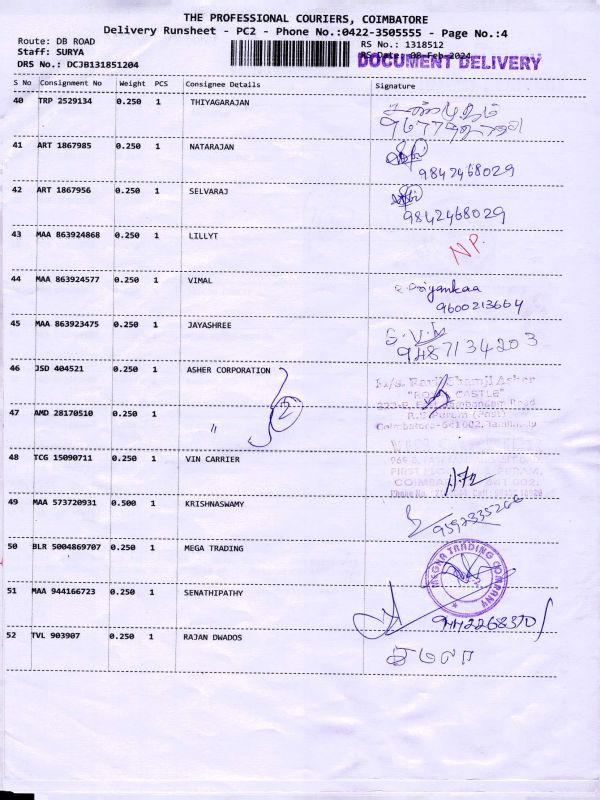 THE PROFESSIONAL COURIERS, COIMBATORE
Delivery Runsheet - PC2 - Phone No.:0422-3505555 - Page No.:4
Route: DB ROAD
RS No.: 1318512
Staff: SURYA
RS Date: 08-Feb-2024
DOCUMENT DELIVERY
DRS No.: DCJB131851204
S No Consignment No Weight PCS Consignee Details Signature
40 TRP 2529134 0.250 1 THIYAGARAJAN
41 ART 1867985 0.250 1 NATARAJAN
9842468029
42 ART 1867956 0.250 1 SELVARAJ
9842468029
43 MAA 863924868 0.250 1 LILLYT
NP.
44 MAA 863924577 0.250 1 VIMAL
Priyankaa
9600213664
45 MAA 863923475 0.250 1 JAYASHREE
9487134203
46 JSD 404521 0.250 1 ASHER CORPORATION
2
47 AMD 28170510 0.250 1 "
Coimbatore-641002,
48 TCG 15090711 0.250 1 VIN CARRIER
49 MAA 573720931 0.500 1 KRISHNASWAMY
50 BLR 5004869707 0.250 1 MEGA TRADING
MEGHA TRADING COMPANY
51 MAA 944166723 0.250 1 SENATHIPATHY
52 TVL 903907 0.250 1 RAJAN DWADOS